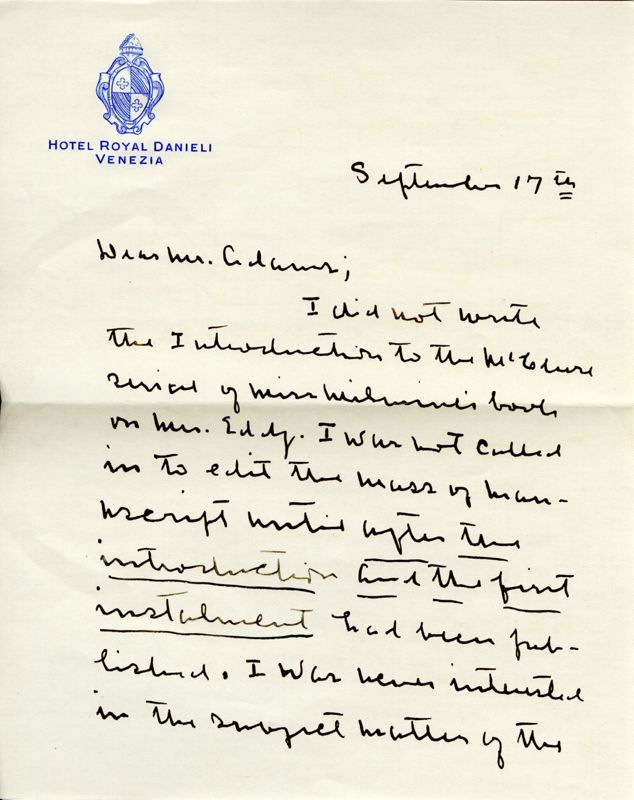 HOTEL ROYAL DANIELI
VENEZIA
September 17th
Dear Mr. Adams;
I did not write
the Introduction to the McClure
serial of Miss Milmine's book
on Mrs. Eddy. I was not called
in to edit the mass of man-
uscript until after the
introduction and the first
instalment had been pub-
lished. I was never interested
in the subject matter of the